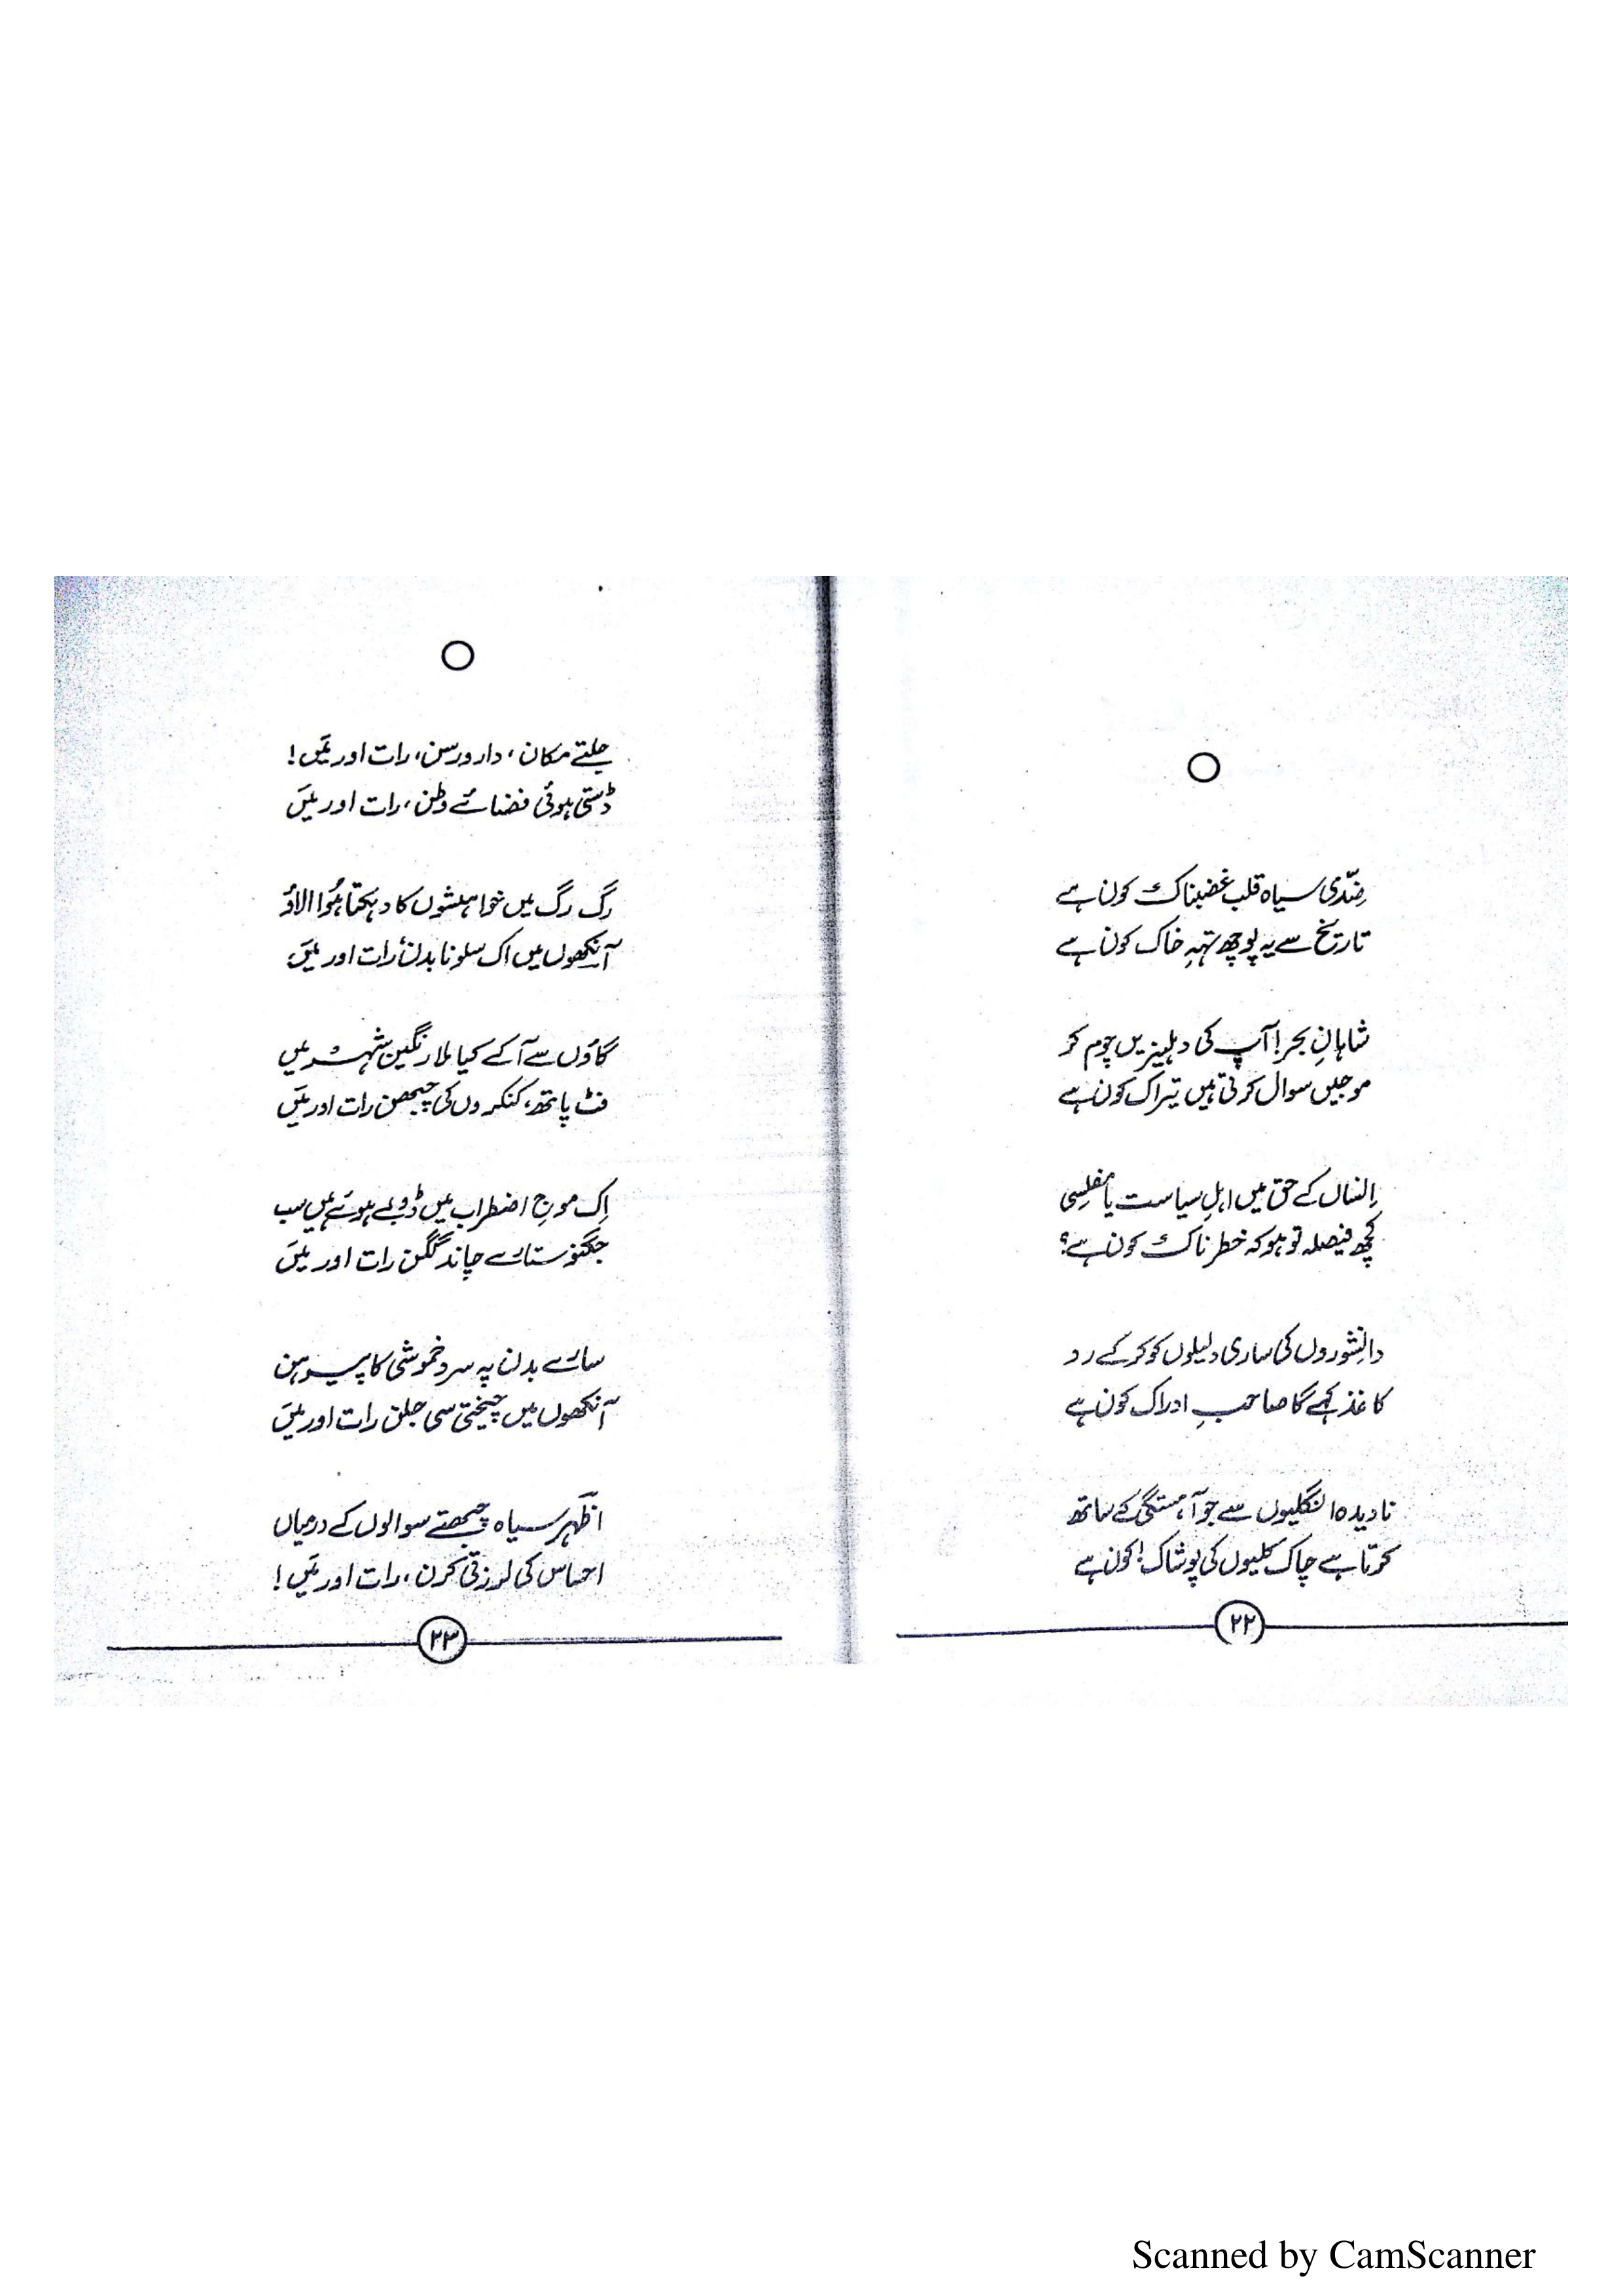 ضدّی سیاہ قلب غضبناک کون ہے
تاریخ سے یہ پوچھ تہہِ خاک کون ہے
شاہانِ بحر! آپ کی دہلیزیں چوم کر
موجیں سوال کرتی ہیں تیراک کون ہے
اِنساں کے حق میں اہلِ سیاست یا مفلسی
کچھ فیصلہ تو ہو کہ خطرناک کون ہے؟
دانِشوروں کی ساری دلیلوں کو کر کے رد
کاغذ کہے گا صاحبِ ادراک کون ہے
نادیدہ انگلیوں سے جو آہستگی کے ساتھ
کرتا ہے چاک کلیوں کی پوشاک! کون ہے
۲۲
جلتے مکان، دار و رسن، رات اور مَیں!
ڈستی ہوئی فضائے وطن، رات اور مَیں
رگ رگ میں خواہشوں کا دہکتا ہُوا الاؤ
آنکھوں میں اک سلونا بدن رات اور مَیں
گاؤں سے آ کے کیا ملا رنگین شہر میں
فٹ پاتھ، کنکروں کی چبھن رات اور مَیں
اِک موجِ اضطراب میں ڈوبے ہوئے ہیں سب
جگنو ستارے چاند گگن رات اور مَیں
سارے بدن پہ سرد خموشی کا پیرہن
آنکھوں میں چیختی سی جلن رات اور مَیں
اظہر سیاہ چبھتے سوالوں کے درمیاں
احساس کی لرزتی کرن، رات اور مَیں!
۲۳
Scanned by CamScanner